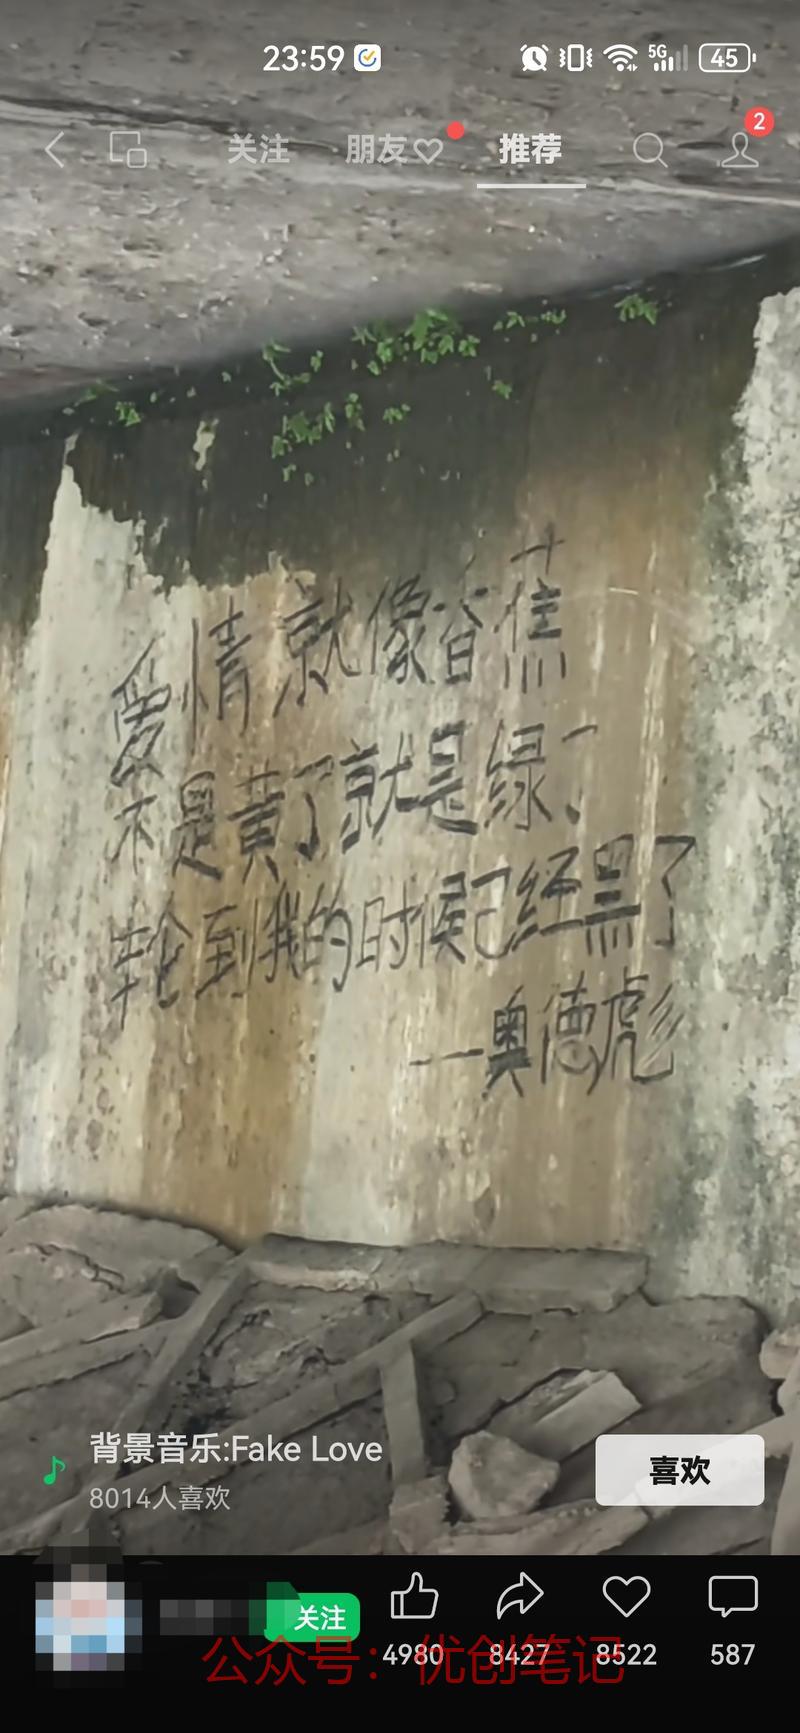 23:59
5G
45
关注
朋友
推荐
2
爱情就像香蕉
不是黄了就是绿了
轮到我的时候已经黑了
——奥德彪
背景音乐:Fake Love
8014人喜欢
喜欢
关注
4980
8427
8522
587
公众号：优创笔记